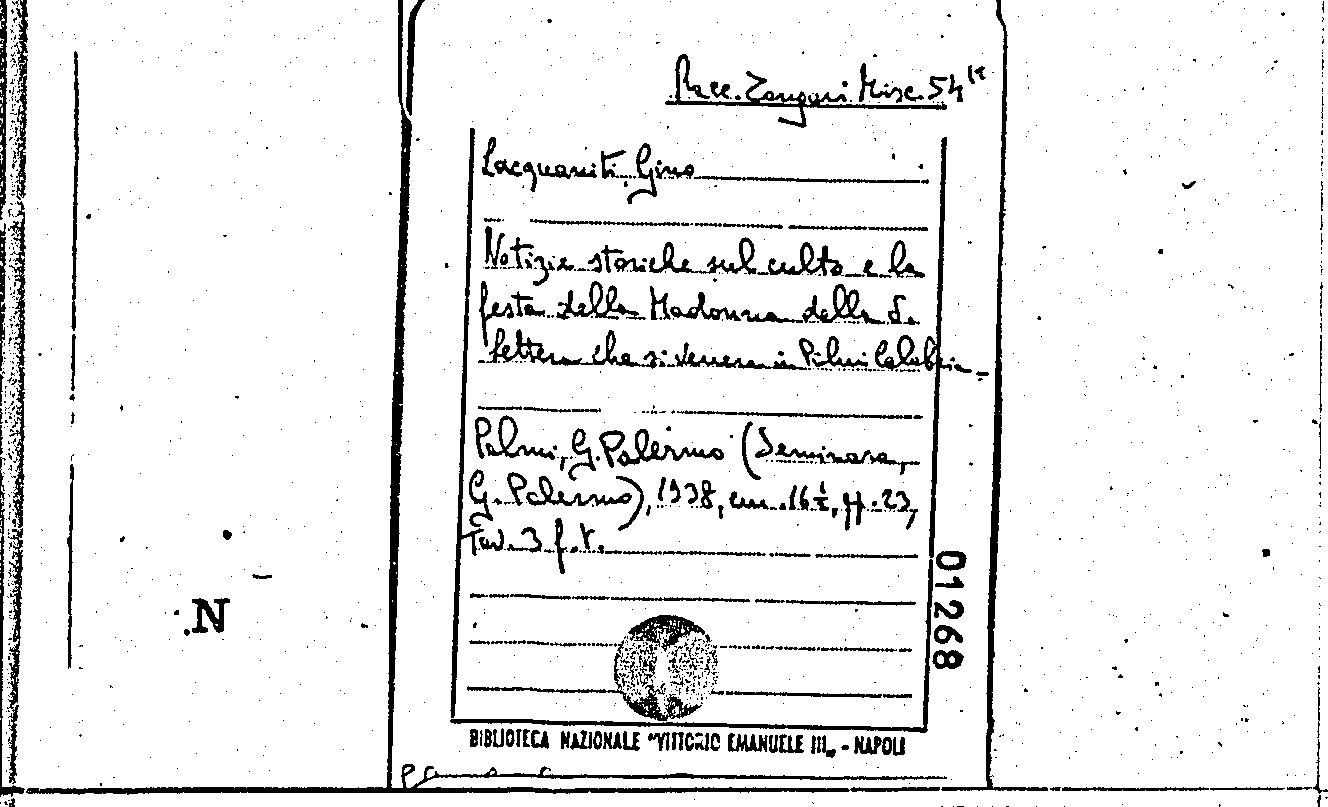 Racc. Zangari Misc. 54
Lacquaniti, Gino
Notizie storiche sul culto e la
festa della Madonna della S.
Lettera che si venera in Palmi Calabria.
Palmi, G. Palermo (Seminara,
G. Palermo), 1938, cm. 16½, pp. 23,
Tav. 3 f. t.
01268
N
BIBLIOTECA NAZIONALE "VITTORIO EMANUELE III„ - NAPOLI